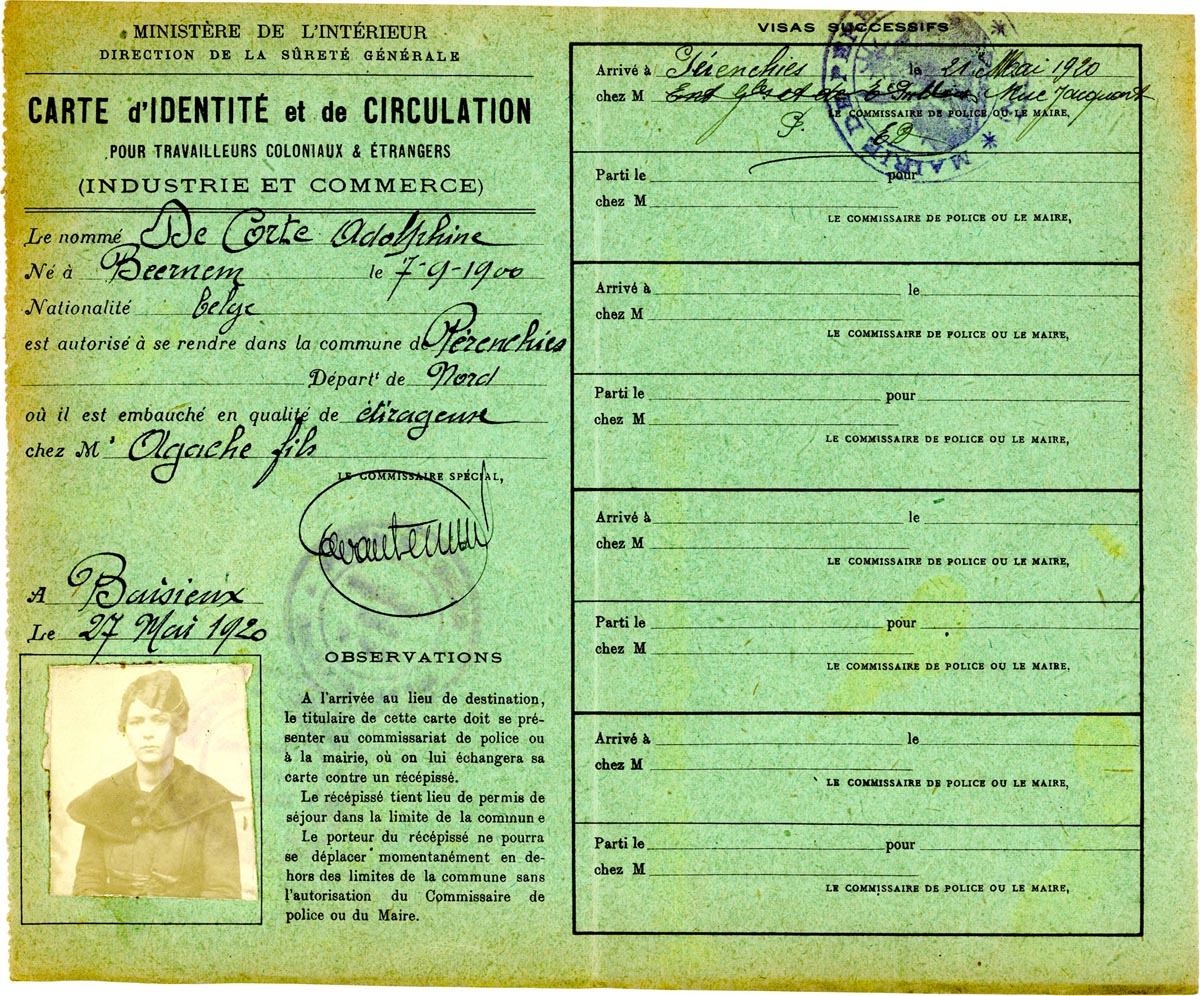 MINISTÈRE DE L'INTÉRIEUR
DIRECTION DE LA SÛRETÉ GÉNÉRALE
CARTE d'IDENTITÉ et de CIRCULATION
POUR TRAVAILLEURS COLONIAUX & ÉTRANGERS
(INDUSTRIE ET COMMERCE)
Le nommé De Corte Adolphine
Né à Beernem le 7-9-1900
Nationalité belge
est autorisé à se rendre dans la commune de Pérenchies
Départt de Nord
où il est embauché en qualité de étirageuse
chez M. Agache fils
LE COMMISSAIRE SPÉCIAL,
A Baisieux
Le 27 Mai 1920
OBSERVATIONS
A l'arrivée au lieu de destination,
le titulaire de cette carte doit se pré-
senter au commissariat de police ou
à la mairie, où on lui échangera sa
carte contre un récépissé.
Le récépissé tient lieu de permis de
séjour dans la limite de la commune
Le porteur du récépissé ne pourra
se déplacer momentanément en de-
hors des limites de la commune sans
l'autorisation du Commissaire de
police ou du Maire.
VISAS SUCCESSIFS
Arrivé à Pérenchies le 21 Mai 1920
chez M Rue Jacquart
LE COMMISSAIRE DE POLICE OU LE MAIRE,
MAIRIE DE
Parti le pour
chez M
LE COMMISSAIRE DE POLICE OU LE MAIRE,
Arrivé à le
chez M
LE COMMISSAIRE DE POLICE OU LE MAIRE,
Parti le pour
chez M
LE COMMISSAIRE DE POLICE OU LE MAIRE,
Arrivé à le
chez M
LE COMMISSAIRE DE POLICE OU LE MAIRE,
Parti le pour
chez M
LE COMMISSAIRE DE POLICE OU LE MAIRE,
Arrivé à le
chez M
LE COMMISSAIRE DE POLICE OU LE MAIRE,
Parti le pour
chez M
LE COMMISSAIRE DE POLICE OU LE MAIRE,